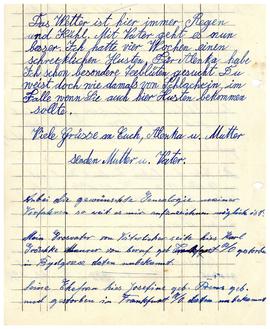 Das Wetter ist hier immer Regen
und Kühl. Mit Vater geht es nun
besser. Ich hatte vier Wochen einen
schrecklichen Husten. Für Alenka habe
Ich schon besondere gesucht. Du
weist doch wie damals von im
Falle wenn Sie auch hier Husten bekommen
sollte.
Viele Grüsse an Euch, Alenka u. Mutter
senden Mutter u. Vater.
Anbei die gewünschte Genealogie meiner
Vorfahren so weit es mir aufzeichnen möglich ist:
Mein Grossvater von Väterlicher seite hies Karl
von beruf Frankfurt a/O gestorben
in daten unbekannt.
Seine Ehefrau hies Josefine geb.
und gestorben in Frankfurt a/O daten unbekannt